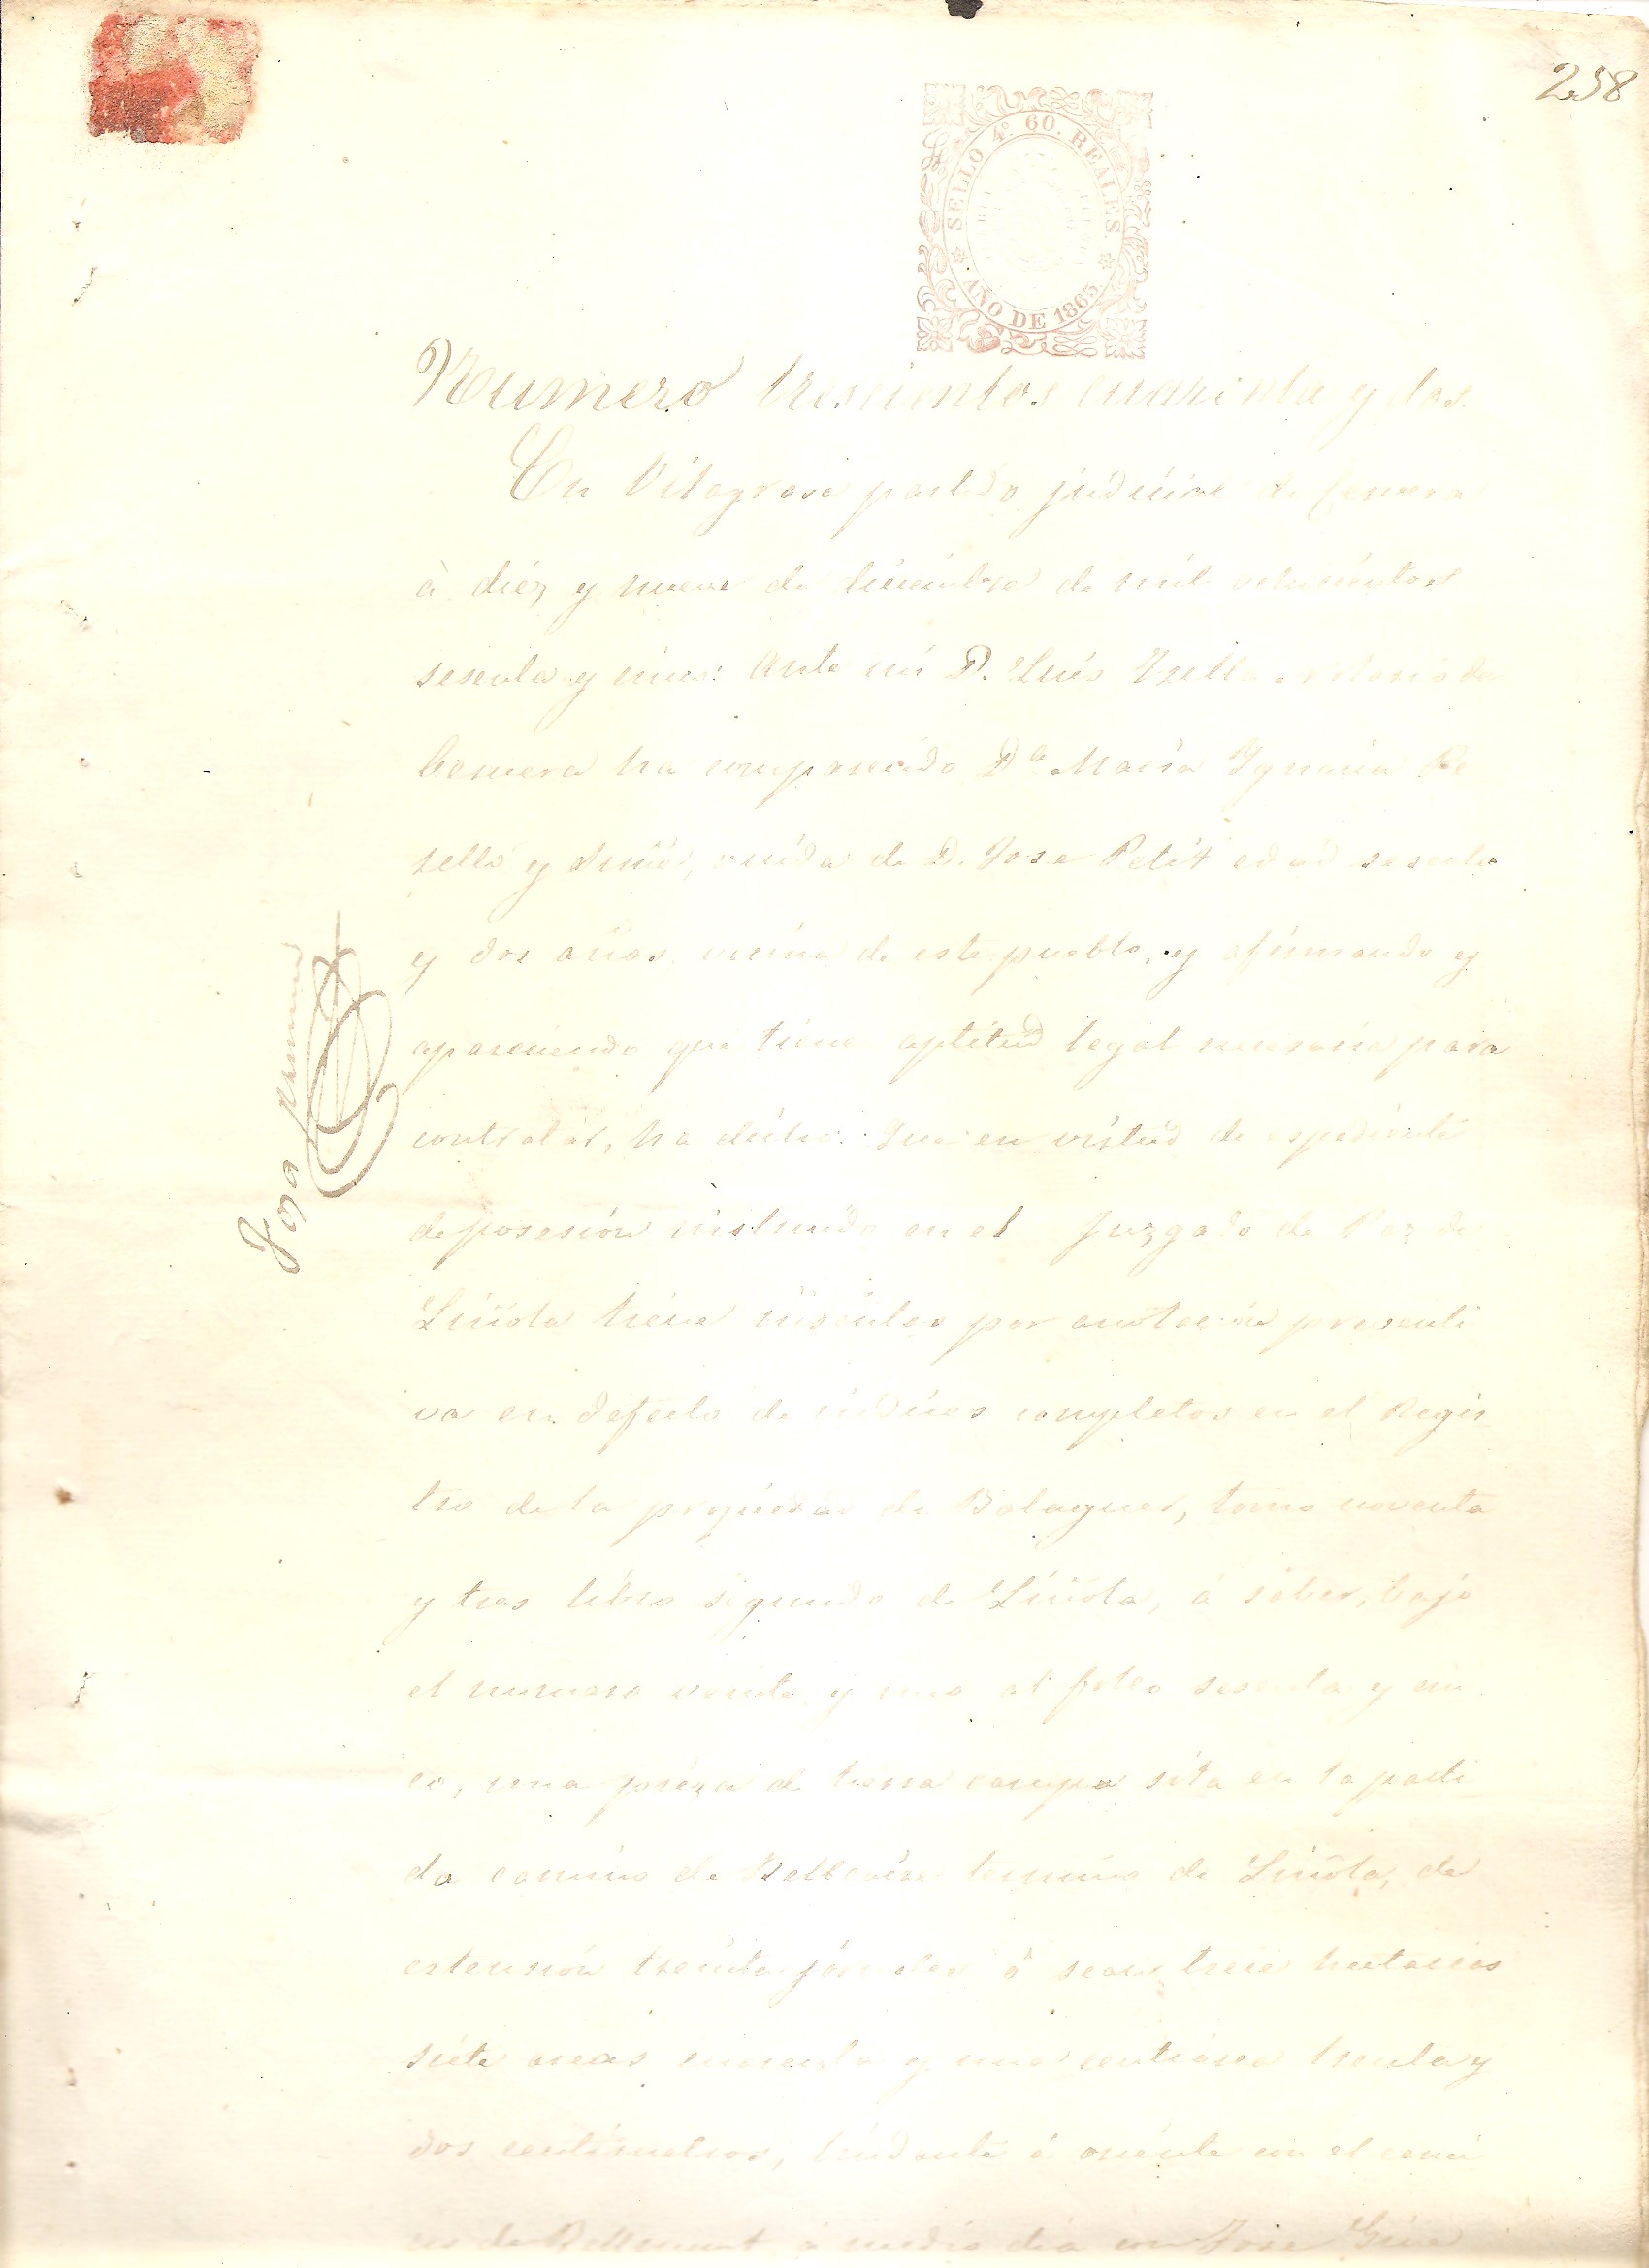 258
SELLO 4º 60. REALES.
AÑO DE 1865.
Numero trescientos cuarenta y dos.
En Vilagrasa partido judicial de Cervera
à diéz y nueve de diciembre de mil ochocientos
sesenta y cinco: Ante mi D. Luis Notario de
Cervera ha comparecido Dª Maria Ygnacia
y viuda de D. Jose Petit edad sesenta
y dos años vecina de este pueblo, y afirmando y
apareciendo que tiene aptitud legal necesaria para
contratar, ha dicho: Que en virtud de espediente
de posesión instruido en el Juzgado de Paz de
Liñola tiene inscritas por anotación preventi
va en defecto de indices completos en el Regis
tro de la propiedad de Balaguer, tomo noventa
y tres libro segundo de Liñola, á saber, bajo
el numero veinte y uno al folio sesenta y cin
co, una pieza de tierra campa sita en la parti
da camino de Bellcaire termino de Liñola, de
estension treinta jornales ó sean trece hectareas
siete areas cuarenta y una centiarea treinta y
dos centimetros, lindante á oriente con el cami
no de Bellmunt, á medio dia con Jose Giné
Jose